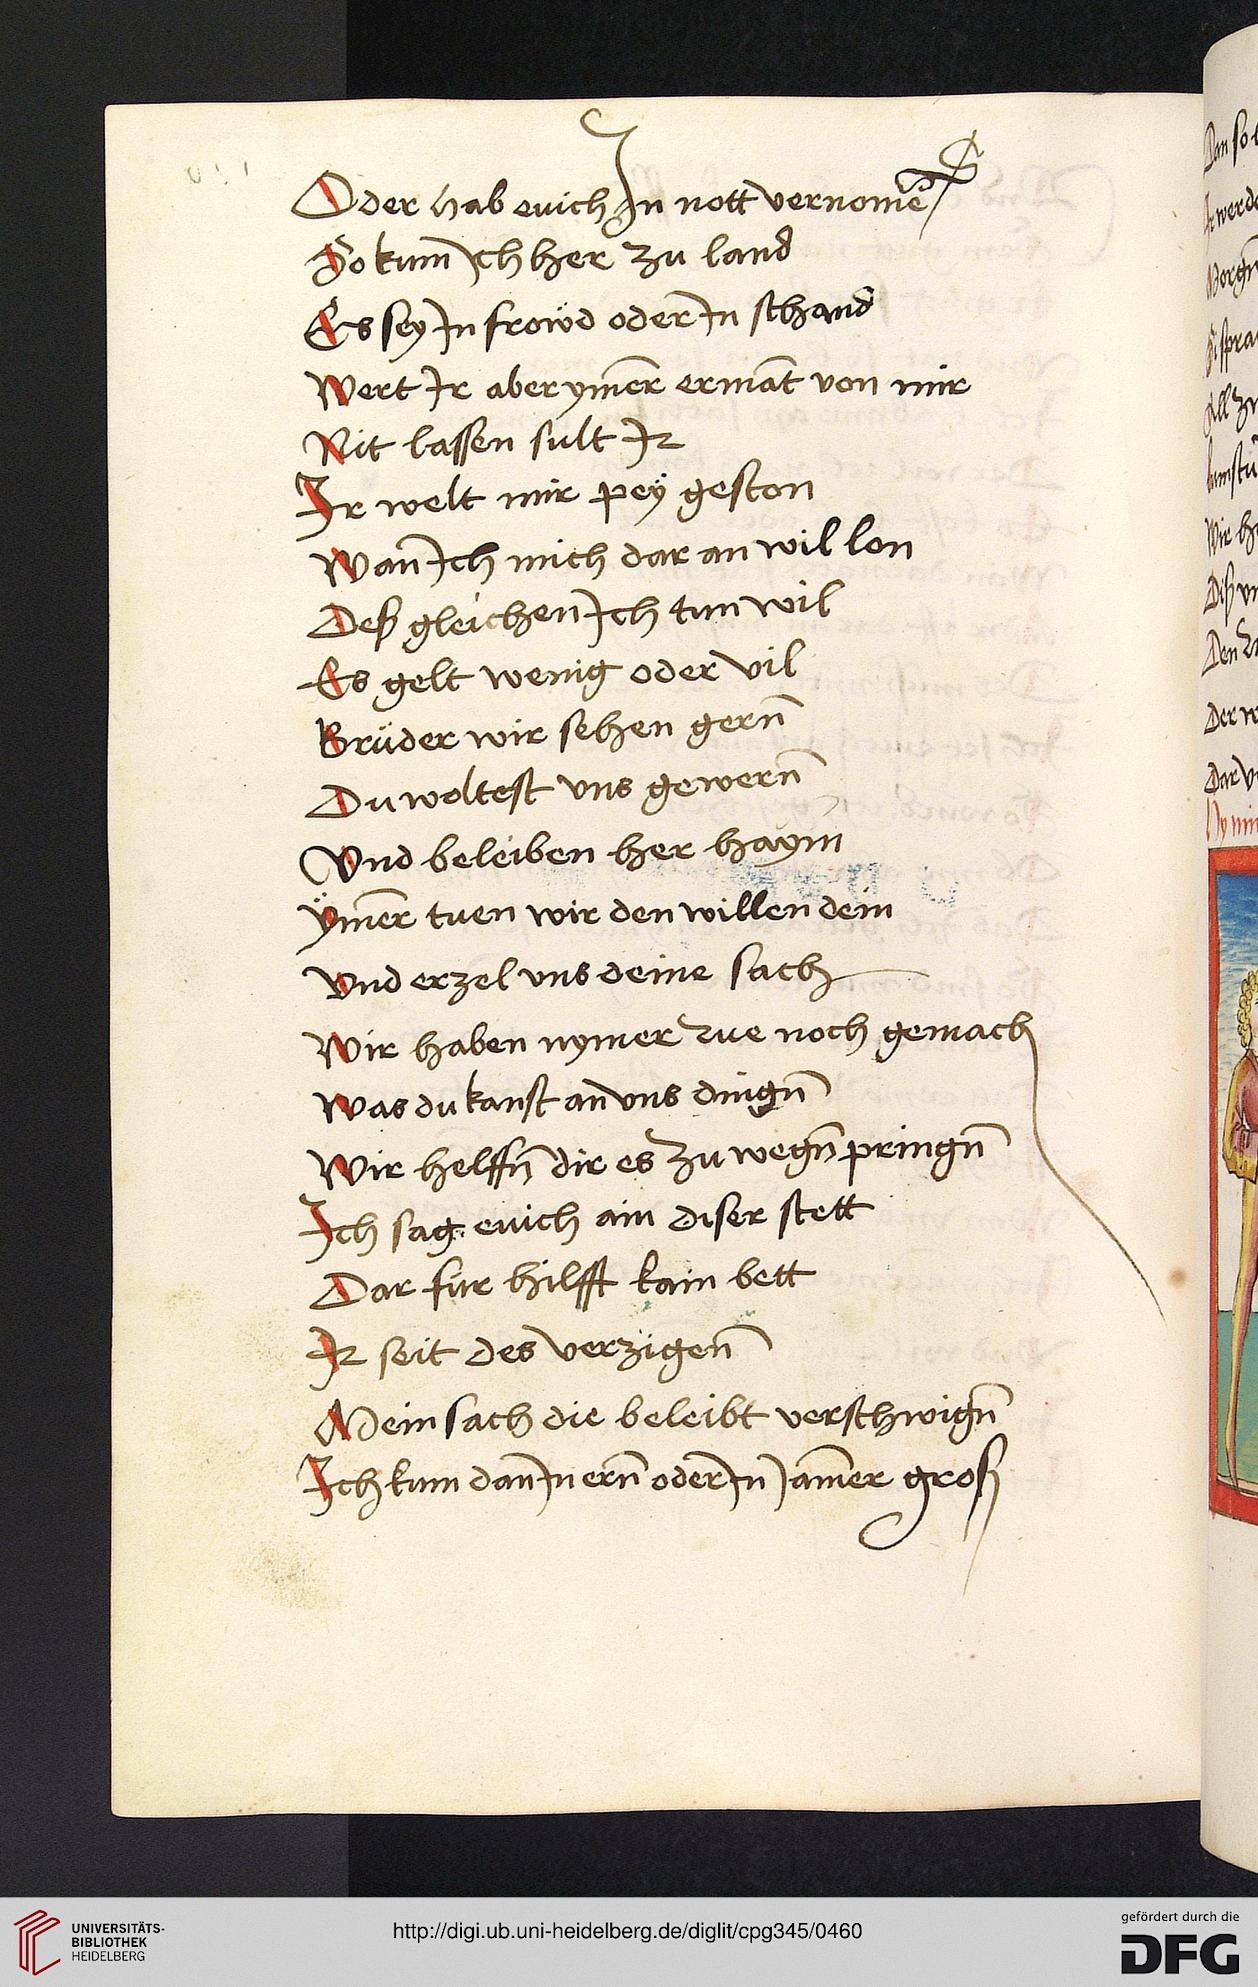 Oder hab euich In nott vernomē
So kum̄ Ich her zu land
Es sey In frowd oder In schand
Wert Ir aber ym̄er erman̄t von mir
Nit lassen sult Ir
Ir welt mir pey geston
Wan̄ Ich mich dar an wil lon
Deß gleichen Ich tun wil
Es gelt wenig oder vil
Brüder wir sehen gern̄
Du woltest vns gewern̄
Vnd beleiben her haym
Ÿm̄er tuen wir den willen dein
Vnd erzel vns deine sach
Wir haben nymer rue noch gemach
Was du kanst an vns dingn̄
Wir helffn̄ dir es zu wegn̄ pringn̄
Ich sag euich ain diser stett
Dar für hilfft kain bett
Ir seit des verzigen̄
Mein sach die beleibt verschwign̄
Ich kum dan̄ In ern̄ oder In Jam̄er groß
Dan so
Ir werd
Der w
All zu
Wir h
Den
Dar v
UNIVERSITÄTS-
BIBLIOTHEK
HEIDELBERG
http://digi.ub.uni-heidelberg.de/diglit/cpg345/0460
gefördert durch die
DFG